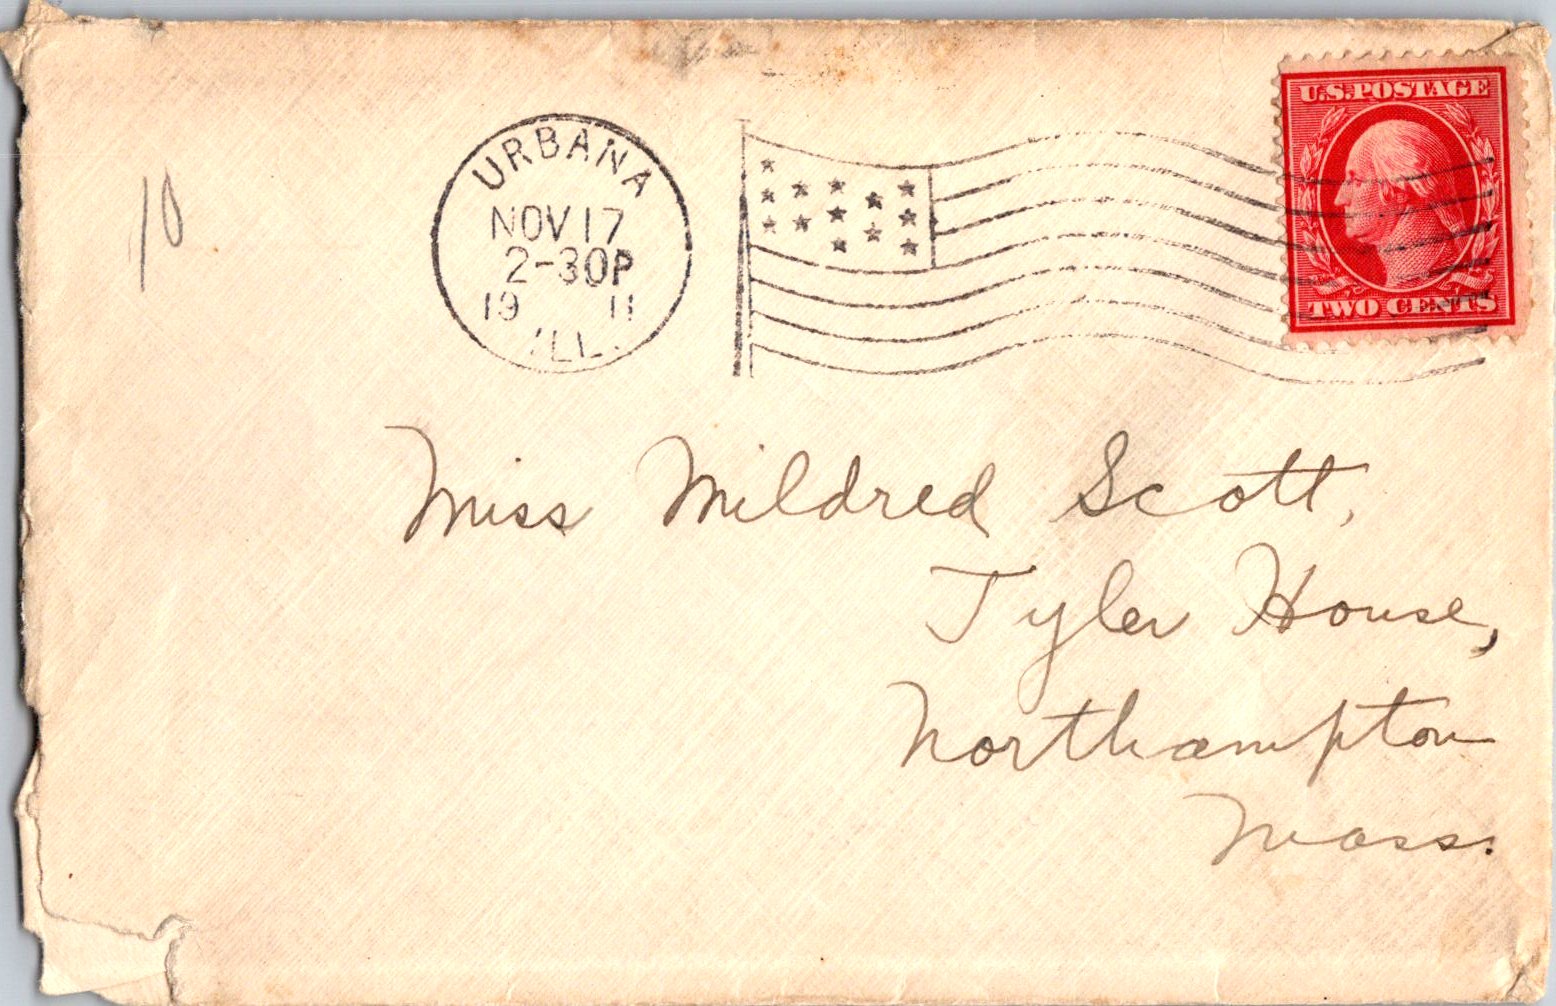 10
URBANA
NOV 17
2-30P
19 11
ILL.
U.S. POSTAGE
TWO CENTS
Miss Mildred Scott,
Tyler House,
Northampton
Mass.